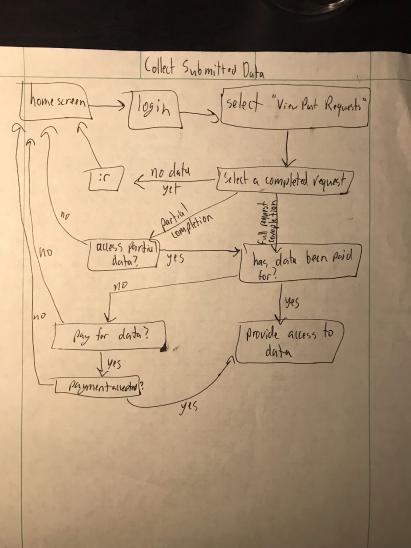 Collect Submitted Data
home screen
login
select "View Past Requests"
:r
no data
yet
Select a completed request
partial
completion
full request
completion
no
access partial
data?
yes
has data been paid
for?
no
no
yes
pay for data?
provide access to
data
yes
no
payment accepted?
yes